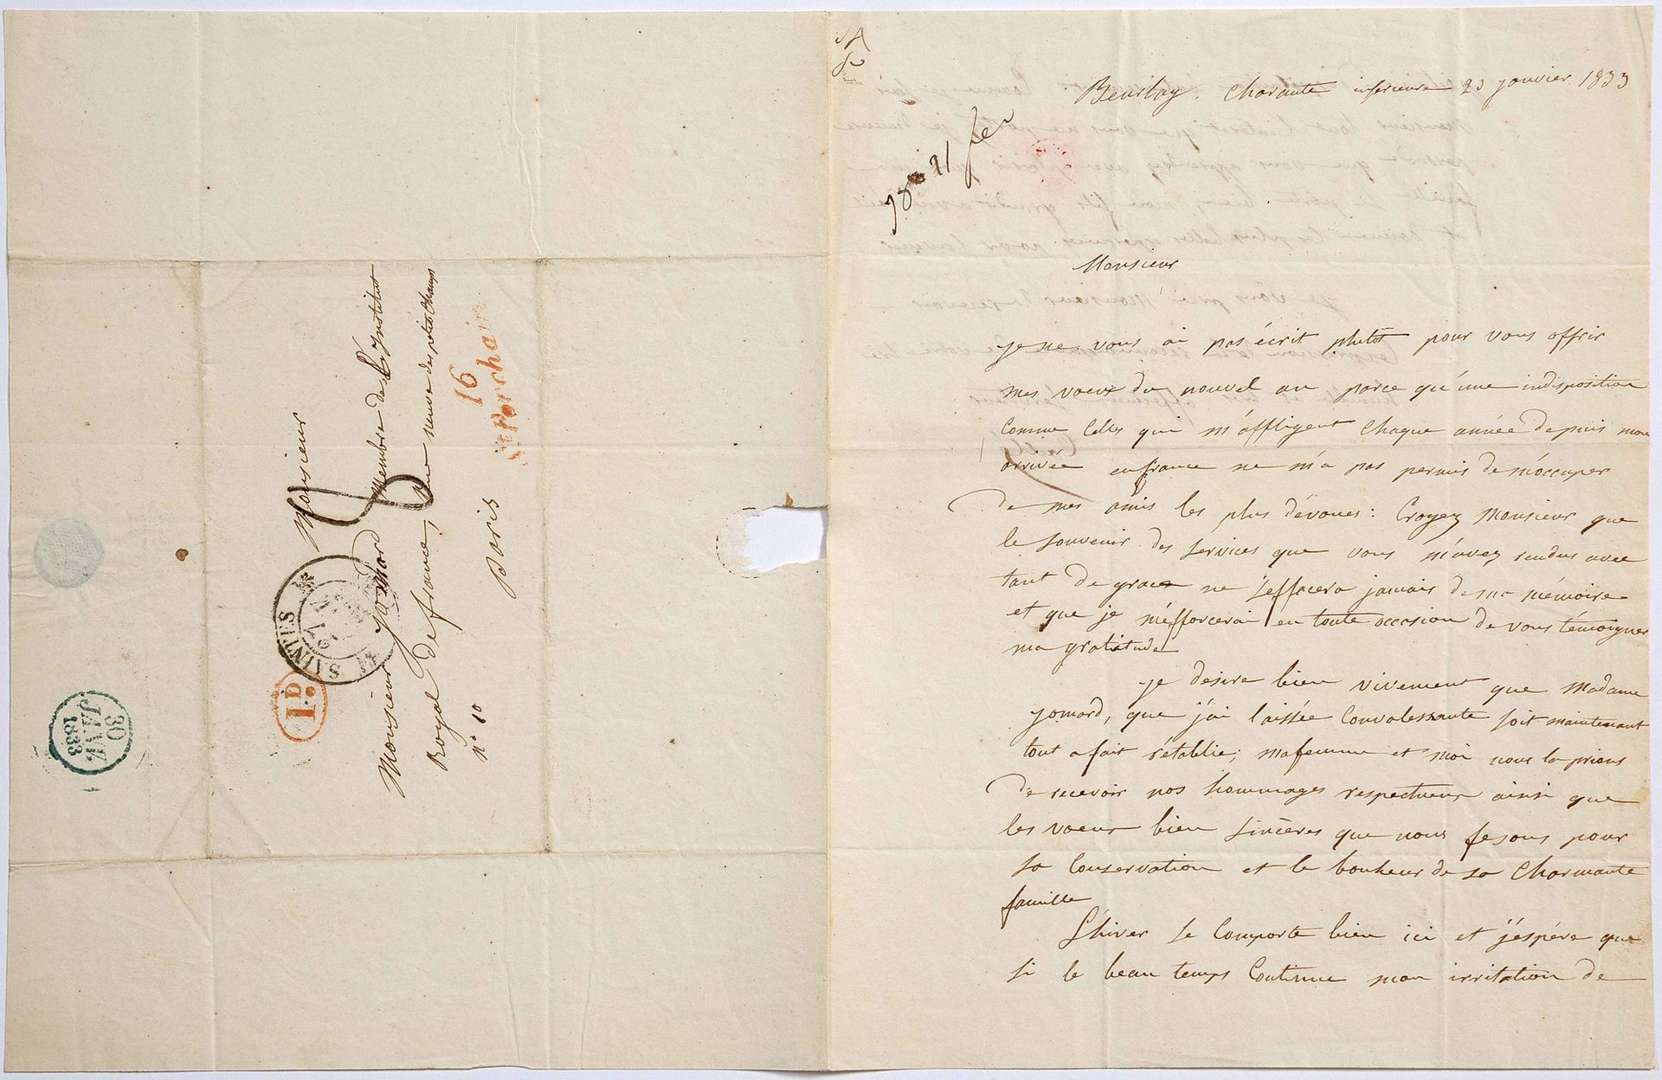 Beurlay. Charante inferieure 23 janvier 1833
Monsieur
je ne vous ai pas écrit plutôt pour vous offrir
mes voeux du nouvel an parce qu'une indisposition
comme celles qui m'affligent chaque année depuis mon
arrivée en france ne m'a pas permis de m'occuper
de mes amis les plus dévoués: Croyez Monsieur que
le souvenir des services que vous m'avez rendus avec
tant de grace ne s'effacera jamais de ma mémoire
et que je m'efforcerai en toute occasion de vous témoigner
ma gratitude
je desire bien vivement que Madame
jomard, que j'ai laissée Convalessante soit maintenant
tout a fait rétablie; ma femme et moi nous la prions
de recevoir nos hommages respectueux ainsi que
les voeux bien sincères que nous fesons pour
sa Conservation et le bonheur de sa Charmante
famille
L'hiver se Comporte bien ici et j'éspére que
si le beau temps Continue mon irritation de
Monsieur
Monsieur Jomard Membre de L'Institut
Royal de france, rue neuve des petits Champs
n° 10
Paris
16
St Porchaire
SAINTES
1.D
30
JANV.
1833